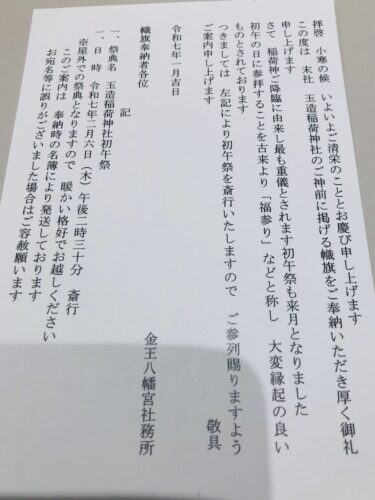 拝啓　小寒の候　いよいよご清栄のこととお慶び申し上げます
この度は　末社　玉造稲荷神社のご神前に掲げる幟旗をご奉納いただき厚く御礼
申し上げます
さて　稲荷神ご降臨に由来し最も重儀とされます初午祭も来月となりました
初午の日に参拝することを古来より「福参り」などと称し　大変縁起の良い
ものとされております
つきましては　左記により初午祭を斎行いたしますので　ご参列賜りますよう
ご案内申し上げます
敬具
令和七年一月吉日
金王八幡宮社務所
幟旗奉納者各位
記
一、祭典名　玉造稲荷神社初午祭
一、日　時　令和七年二月六日（木）午後二時三十分　斎行
※屋外での祭典となりますので　暖かい格好でお越しください
このご案内は　奉納時の名簿により発送しております
お宛名等に誤りがございました場合はご容赦願います